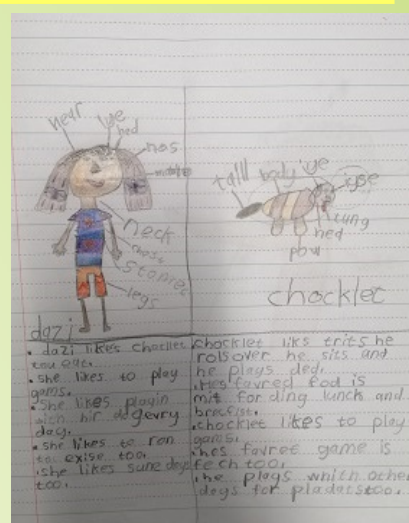 hear
ye
hed
nas
neck
stomec
legs
dazi
talll
body
ye
tung
hed
pow
chocklet
. dazi likes
you eat.
. she likes to play
gams.
. she likes playin
with hir dog evry
day.
. she likes to ron
to exise too.
. she likes sune days
too.
chocklet liks trits he
rolsover he sits and
he plays ded.
. hes favred fod is
mit for ding lunch and
brecfist.
. chocklet likes to play
gams.
. hes favret game is
fech too.
. he plays which other
dogs for pladats too.